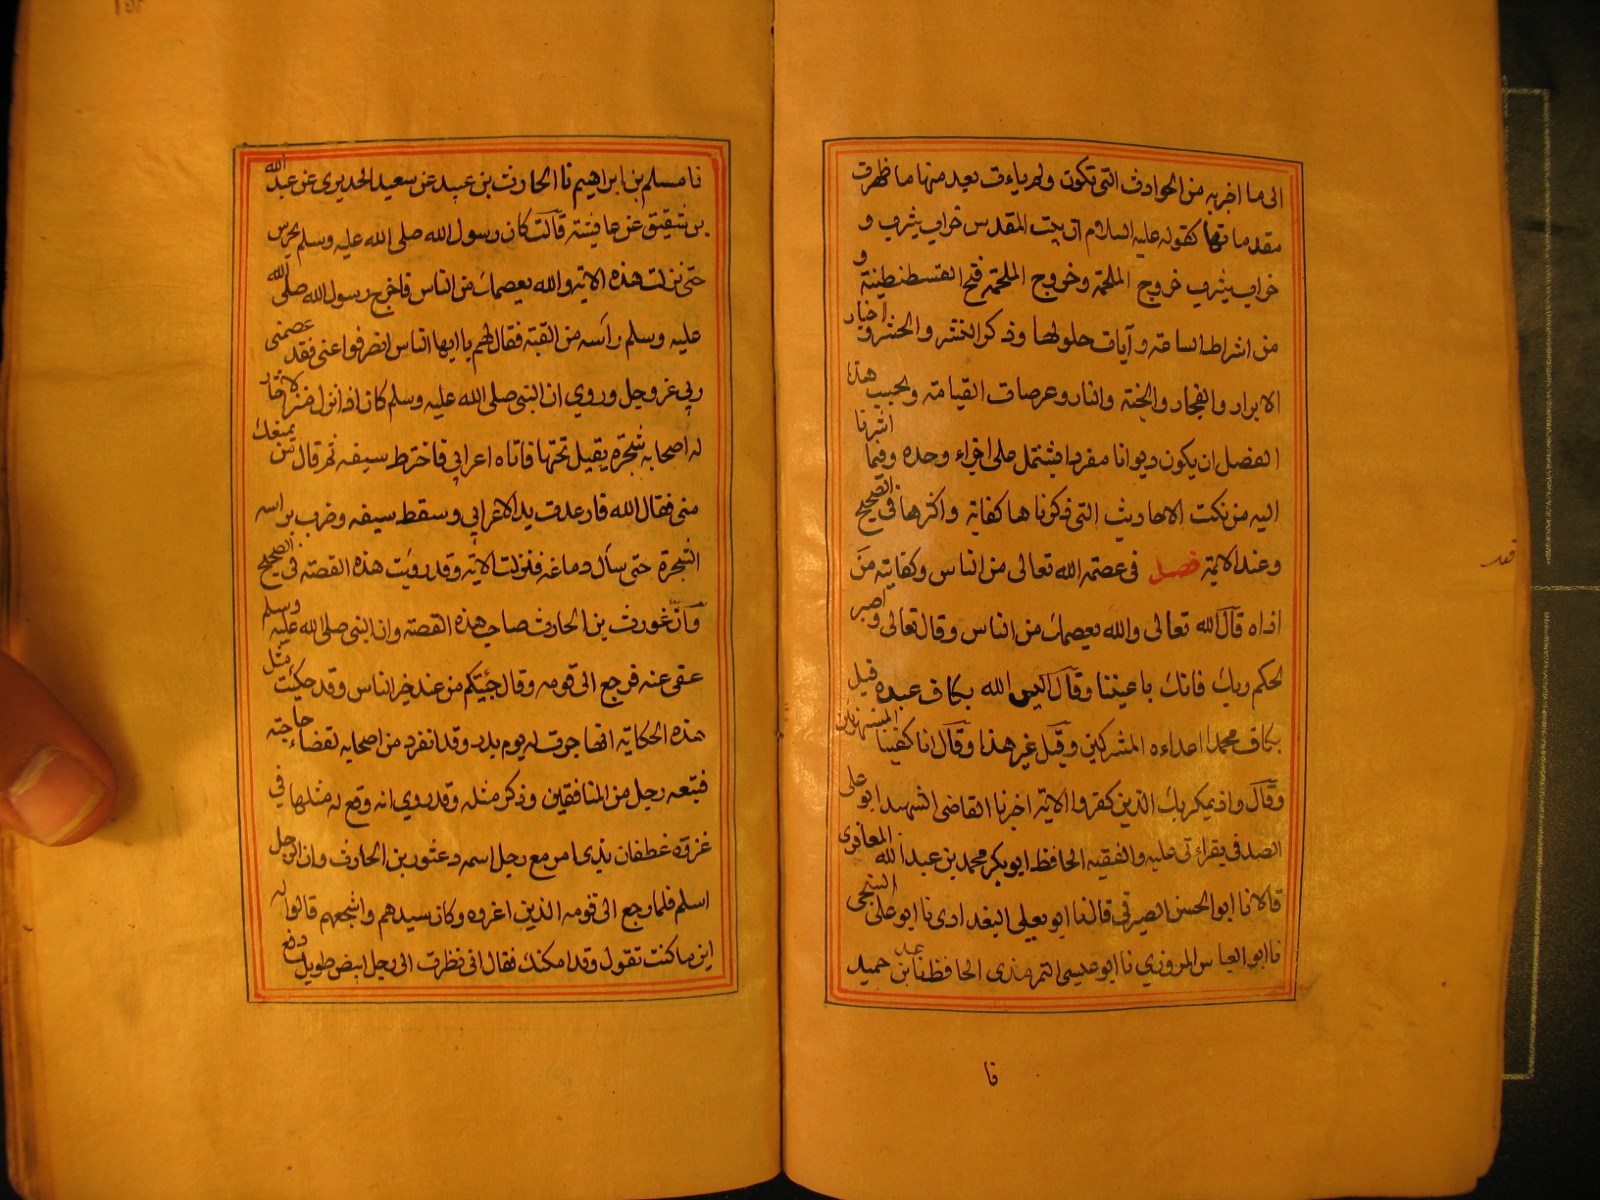 الى ما اخبر به من الحوادث التى تكون ولم يات بعد منها ما ظهرت
مقدماتها كقوله عليه السلام ان بيت المقدس خراب يثرب و
خراب يثرب خروج الملحمة وخروج الملحمة فتح القسطنطينة و
من اشراط الساعة و آيات حلولها وذكر النشر والحشر و اخبار
الابرار والفجار والجنة والنار وعرصات القيامة وبحسب هذا
الفصل ان يكون ديوانا مفردا يشتمل على اجزاء وحده وفيما اشرنا
اليه من نكت الاحاديث التى ذكرناها كفاية واكثرها فى الصحيح
وعند الائمة فصل فى عصمة الله تعالى من الناس وكفايته من
اذاه قال الله تعالى والله يعصمك من الناس وقال تعالى واصبر
لحكم ربك فانك باعيننا وقال اليس الله بكاف عبده قيل
بكاف محمدا اعداءه المشركين وقيل غير هذا وقال انا كفيناك المستهزئين
وقال واذ يمكر بك الذين كفروا الاية اخبرنا القاضى الشهيد ابو على
الصدفى بقراءتى عليه والفقيه الحافظ ابو بكر محمد بن عبد الله المعافرى
قالا نا ابو الحسن الصيرفى قال نا ابو يعلى البغدادى نا ابو على السنجى
نا ابو العباس المروزي نا ابو عيسى الترمذى الحافظ نا عبد بن حميد
نا
قد
نا مسلم بن ابراهيم نا الحارث بن عبيد عن سعيد الجديرى عن عبد الله
بن شقيق عن عايشة قالت كان رسول الله صلى الله عليه وسلم يحرس
حتى نزلت هذه الاية والله يعصمك من الناس فاخرج رسول الله صلى الله
عليه وسلم رأسه من القبة فقال لهم يا ايها الناس انصرفوا عنى فقد عصمنى
ربي عز وجل وروي ان النبى صلى الله عليه وسلم كان اذا نزل منزلا اختار
له اصحابه شجرة يقيل تحتها فاتاه اعرابي فاخترط سيفه ثم قال من يمنعك
منى فقال الله فارعدت يد الاعرابي وسقط سيفه وضرب براسه
الشجرة حتى سأل دماغه فنزلت الاية وقد رويت هذه القصة فى الصحيح
وان غورث بن الحارث صاحب هذه القصة وان النبى صلى الله عليه وسلم
عفى عنه فرجع الى قومه وقال جئتكم من عند خير الناس وقد حكيت مثل
هذه الحكاية انها جرت له يوم بدر وقد انفرد من اصحابه لقضاء حاجته
فتبعه رجل من المنافقين وذكر مثله وقد روي انه وقع له مثلها في
غزوة غطفان بذى امر مع رجل اسمه دعثور بن الحارث وان الرجل
اسلم فلما رجع الى قومه الذين اغروه وكان سيدهم واشجعهم قالوا له
اين ما كنت تقول وقد امكنك فقال انى نظرت الى رجل ابيض طويل دفع